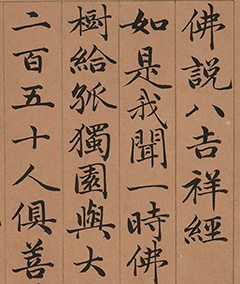 佛説八吉祥經
如是我聞一時佛
樹給孤獨園與大
二百五十人俱善